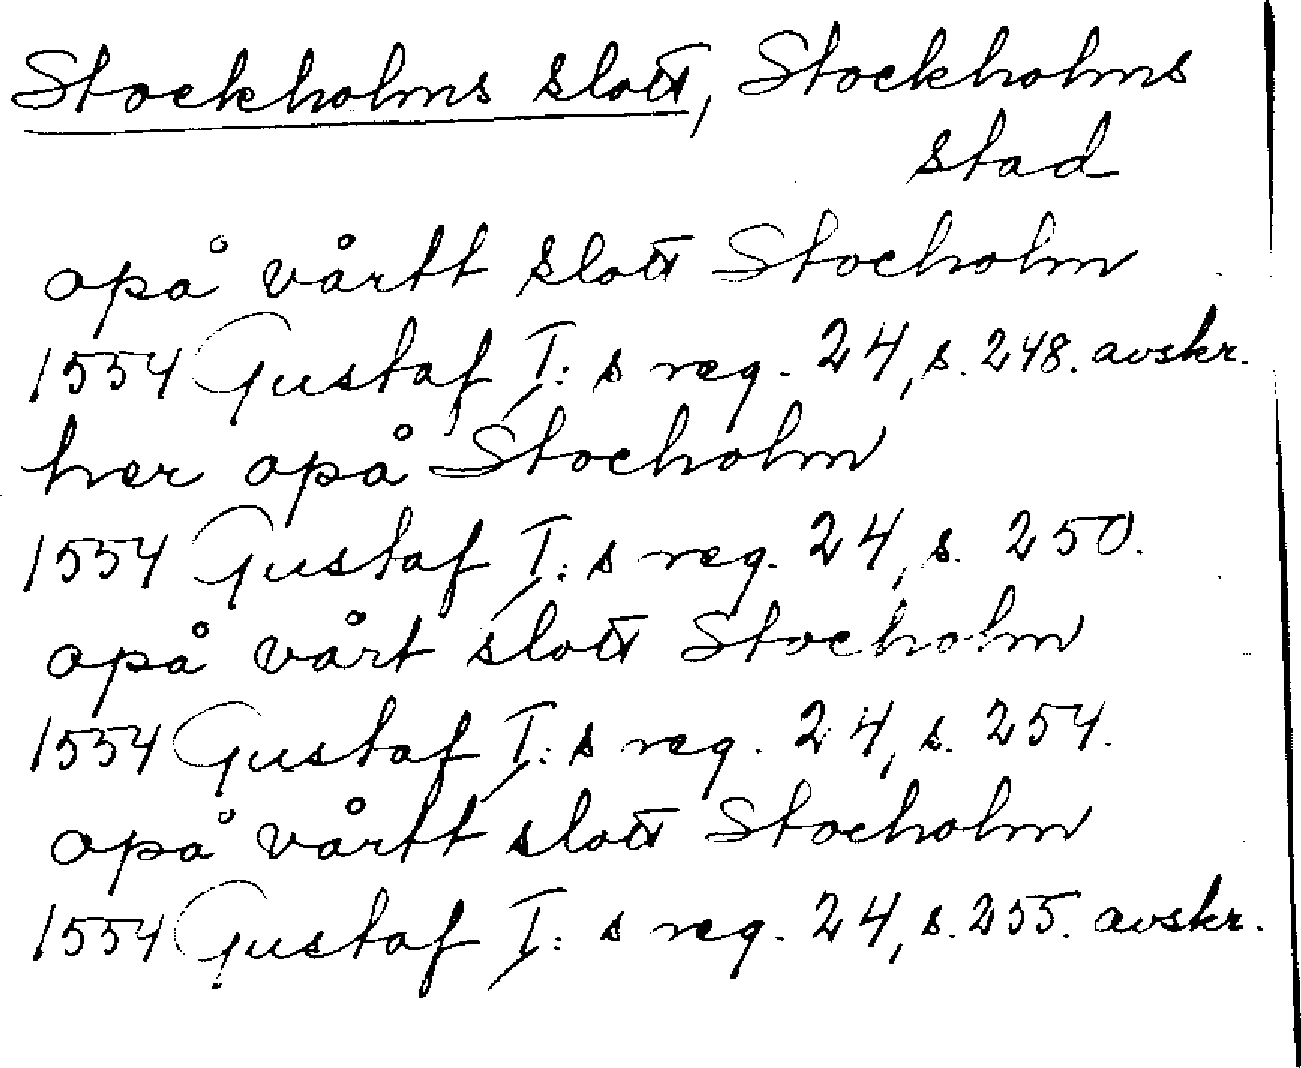 Stockholms slott, Stockholms
stad
opå vårtt slott Stocholm
1554 Gustaf I:s reg. 24, s. 248. avskr.
her opå Stocholm
1554 Gustaf I:s reg. 24, s. 250.
opå vårt slott Stocholm
1554 Gustaf I:s reg. 24, s. 254.
opå vårtt slott Stocholm
1554 Gustaf I:s reg. 24, s. 255. avskr.